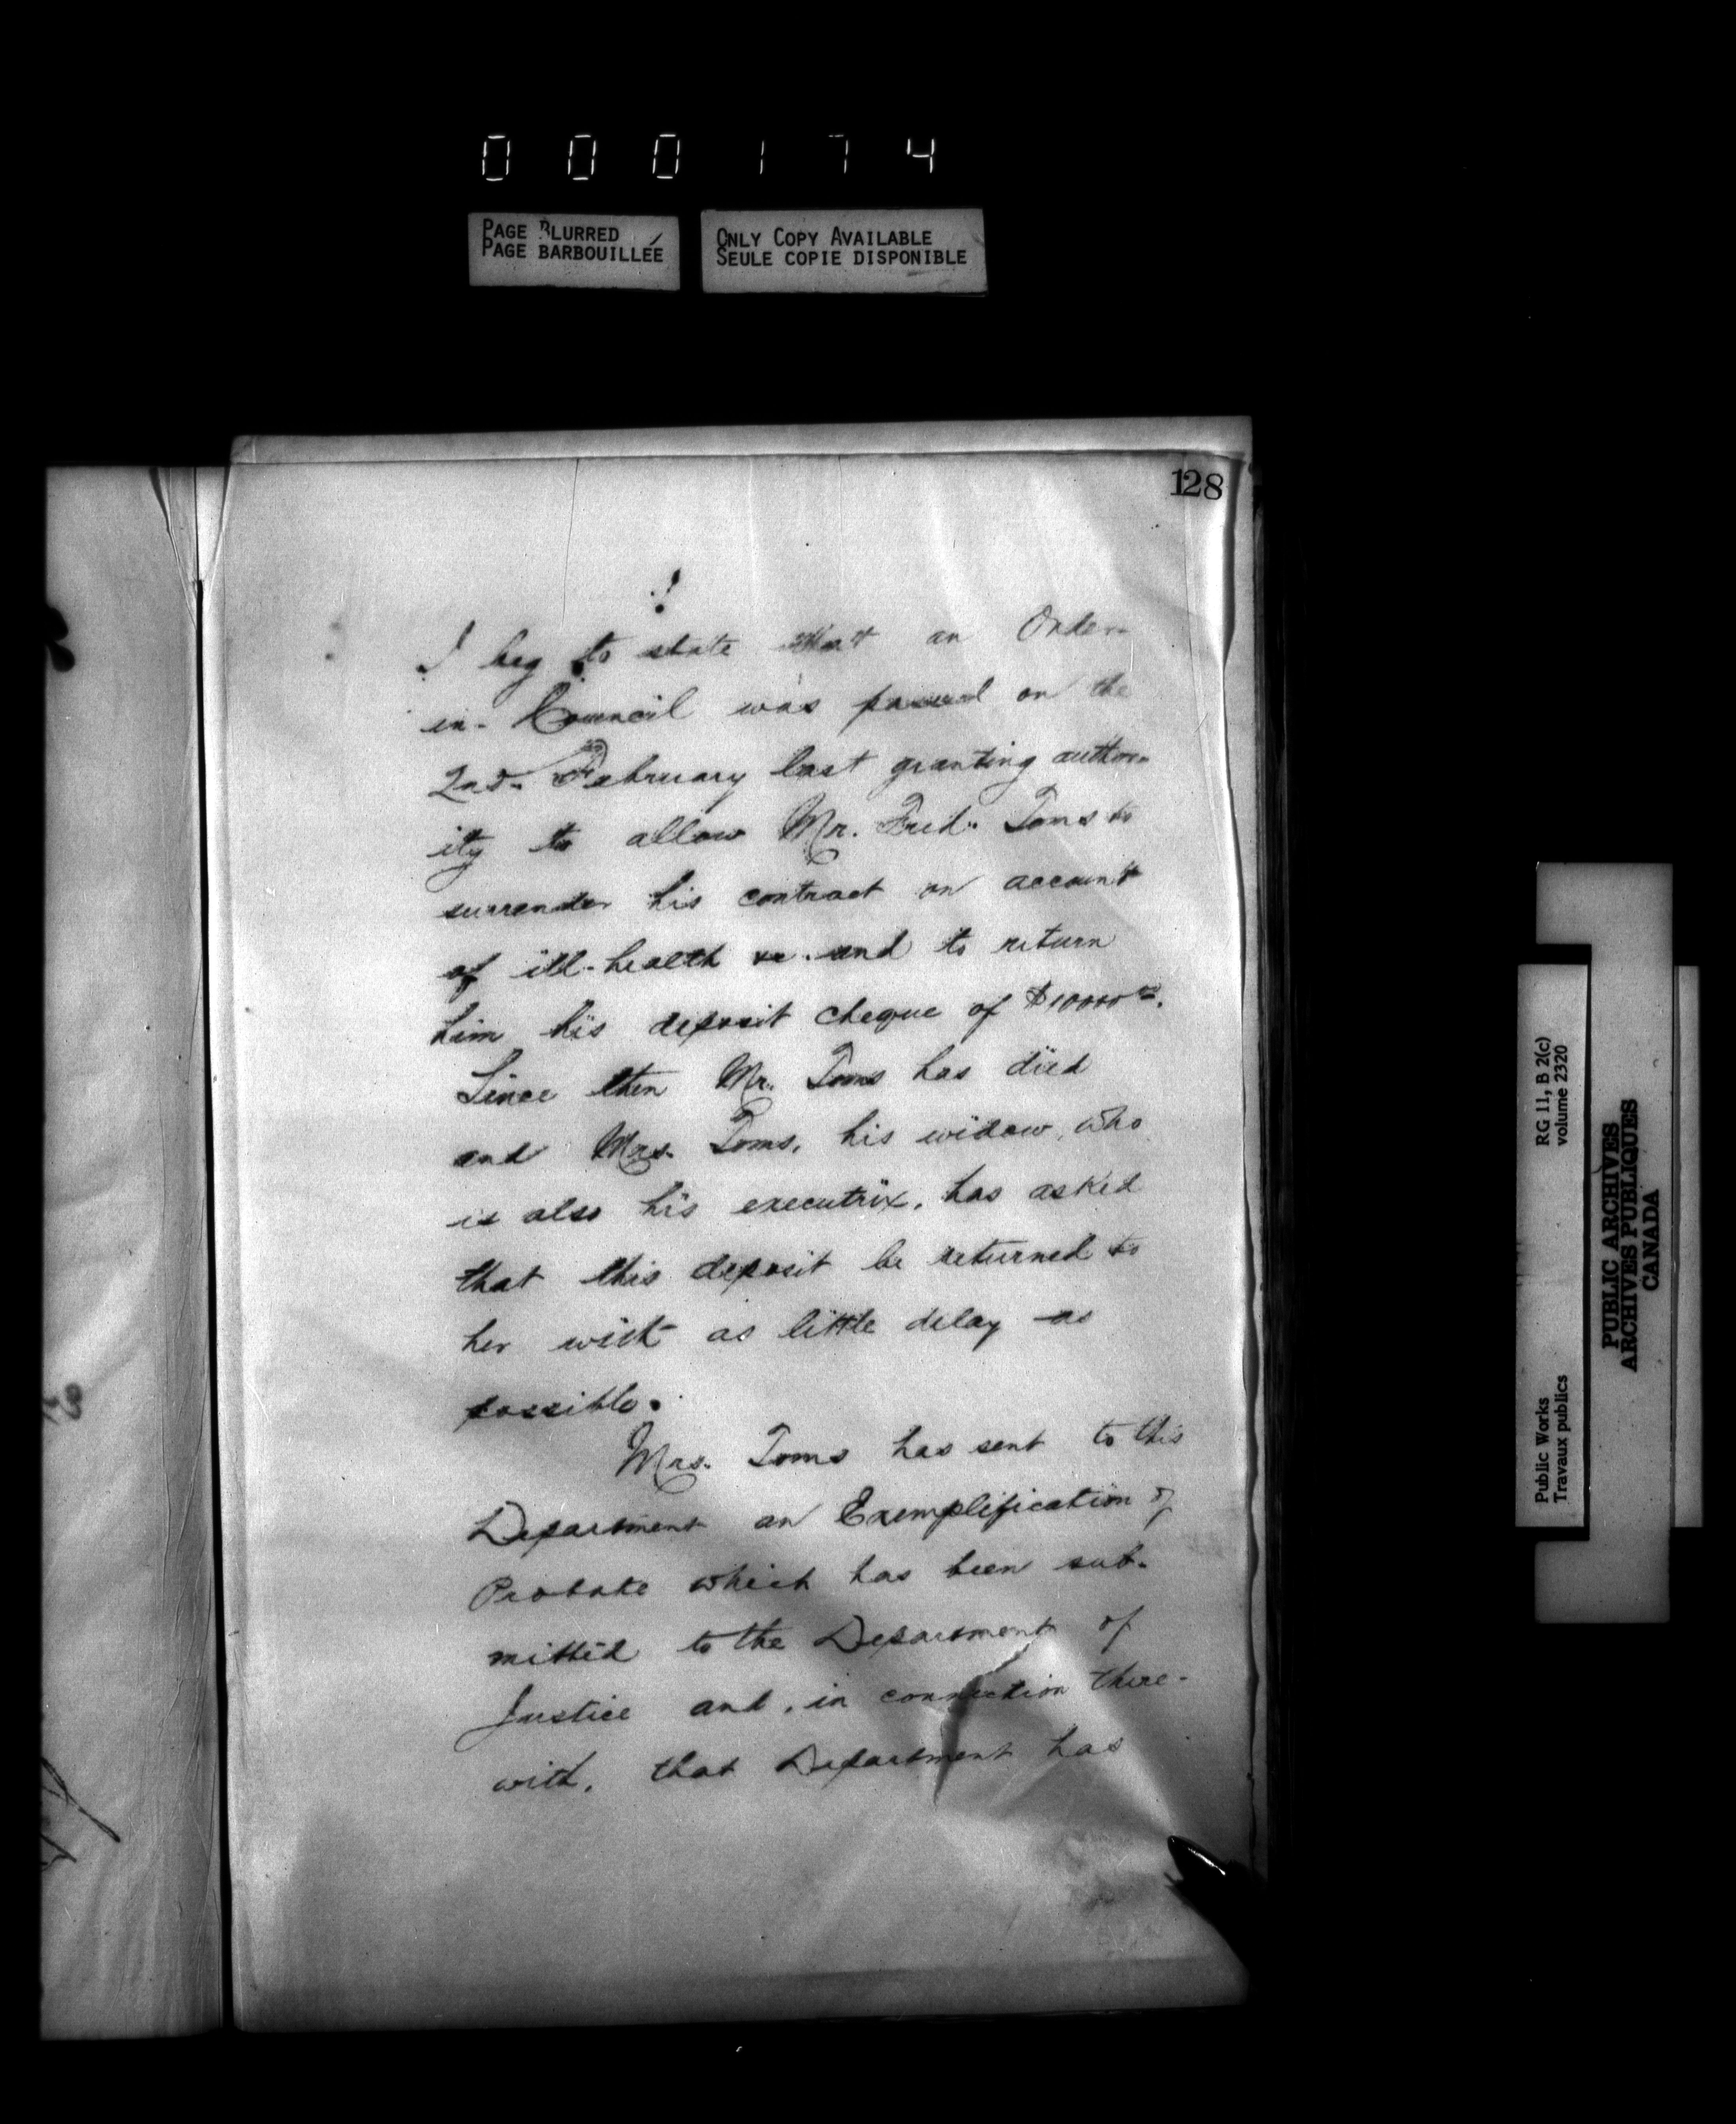 000174
PAGE BLURRED
PAGE BARBOUILLÉE
ONLY COPY AVAILABLE
SEULE COPIE DISPONIBLE
128
I beg to state that an Order-
in-Council was passed on the
2nd. February last granting author-
ity to allow Mr. Fred. Toms to
surrender his contract on account
of ill-health &c. and to return
him his deposit cheque of
Since then Mr. Toms has died
and Mrs. Toms, his widow, who
is also his executrix, has asked
that this deposit be returned to
her with as little delay as
possible.
Mrs. Toms has sent to this
Department an Exemplification of
Probate which has been sub-
mitted to the Department of
Justice and, in connection there-
with, that Department has
Public Works
Travaux publics
RG 11, B 2(c)
volume 2320
PUBLIC ARCHIVES
ARCHIVES PUBLIQUES
CANADA